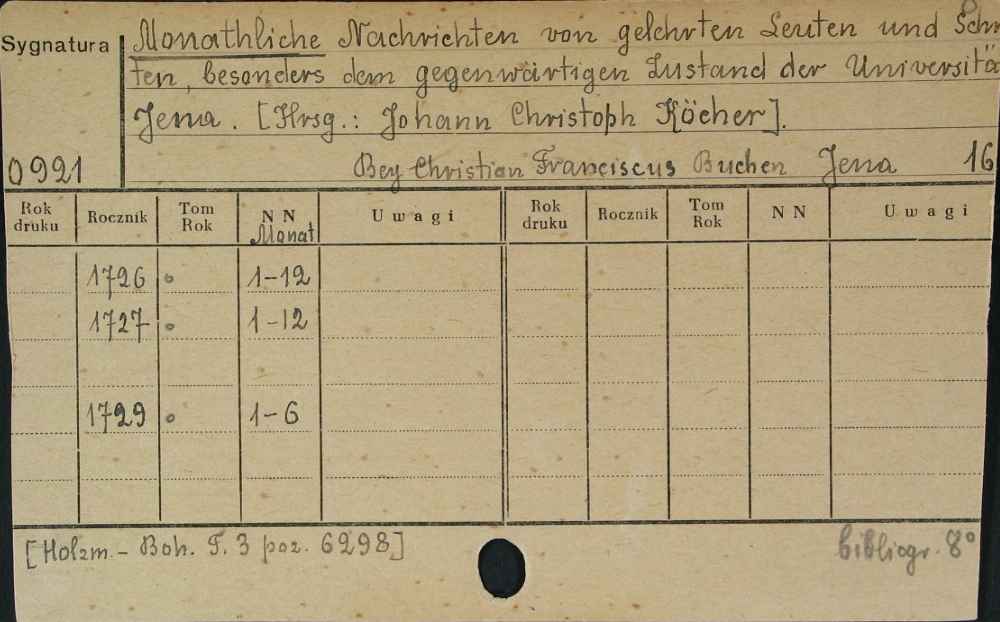 Sygnatura
Monathliche Nachrichten von gelehrten Leuten und Schr
ten, besonders dem gegenwärtigen Zustand der Universitä
Jena. [Hrsg.: Johann Christoph Köcher].
0921 Bey Christian Franciscus Buchen Jena 16
Rok druku Rocznik Tom Rok NN Monat Uwagi Rok druku Rocznik Tom Rok NN Uwagi
1726 1-12
1727 1-12
1729 1-6
[Holzm. - Boh. T. 3 poz. 6298] bibliogr. 8°